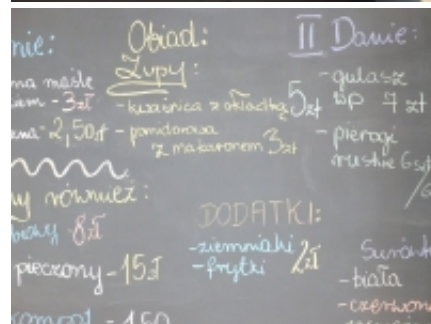 nie:
na maśle
- 3zł
- 2,50zł
również:
8zł
pieczony - 15zł
kompot - 1,50
Obiad:
Zupy:
- kwaśnica z okładką 5zł
- pomidorowa
z makaronem 3zł
DODATKI:
- ziemniaki
- frytki 2zł
II Danie:
- gulasz
wp 7 zł
- pierogi
ruskie 6szt
- biała